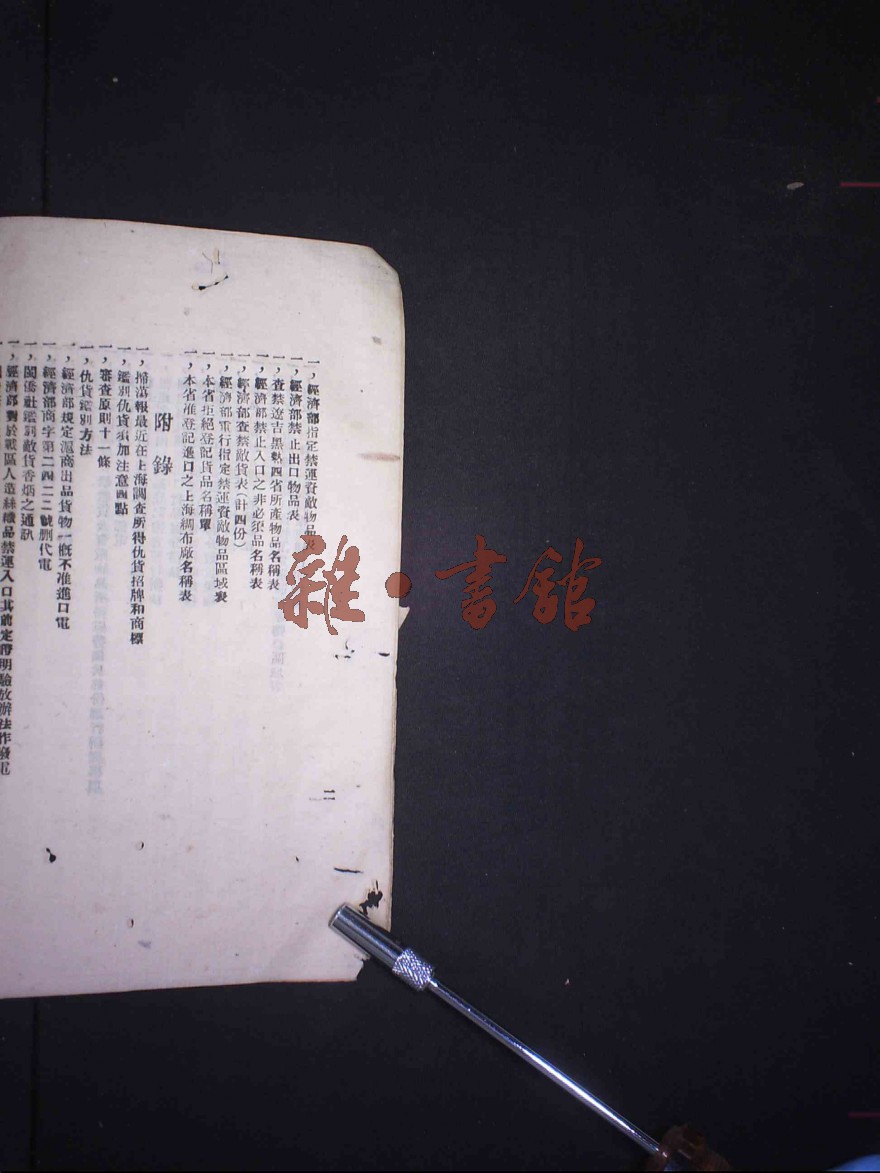 一，經濟部指定禁運資敵物品表
一，經濟部禁止出口物品表
一，查禁遼吉黑熱四省所產物品名稱表
一，經濟部禁止入口之非必須品名稱表
一，經濟部查禁敵貨表（計四份）
一，經濟部重行指定禁運資敵物品區域表
一，本省拒絕登記貨品名稱單
一，本省准登記進口之上海綢布廠名稱表
附錄
一，掃蕩報最近在上海調查所得仇貨招牌和商標
一，鑑別仇貨須加注意四點
一，審查原則十一條
一，仇貨鑑別方法
一，經濟部規定滬商出品貨物一概不准進口電
一，經濟部商字第二四二二二號删代電
一，閩僑社鑑別敵貨香烟之通訊
一，經濟部對於戰區人造絲織品禁運入口其前定證明驗放辦法作廢電
二
雜·書館